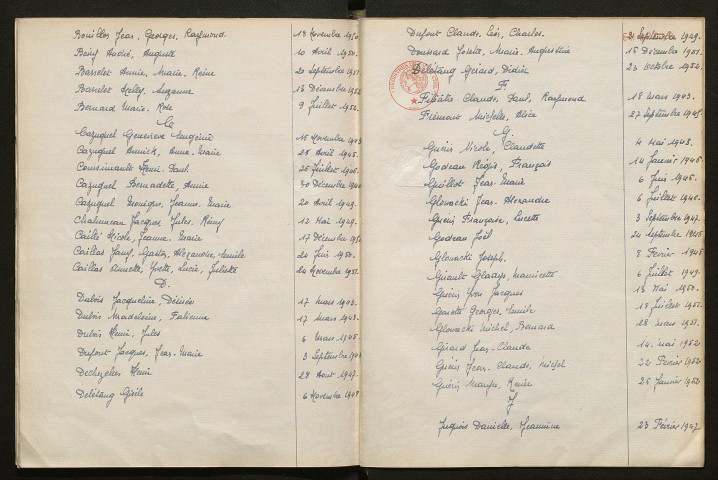 Jean, Georges, Raymond 18 Novembre
André, Auguste 10 Avril 1950.
Basselet Annie, Marie, Reine 20 Septembre 1951
Basselet Suzanne 13 Décembre
Bernard Marie-Rose 9 Juillet 1952.
C
Cazuguel Geneviève 15 Novembre
Cazuguel Annick, Anne-Marie 28 Avril 1945.
Henri-Paul 25 Juillet 1945.
Cazuguel Bernadette, Annie 30 Décembre
Cazuguel Monique, Jeanne-Marie 20 Avril 1949.
Jacques, Jules, Rémy 12 Mai 1949.
Caillé Nicole, Jeanne-Marie 17 Décembre
Caillas Gaston, Alexandre, Emile 24 Juin 1950.
Caillas Annette, Yvette, Lucie, Juliette 24 Novembre 1951.
D.
Dubois Jacqueline, Désirée 17 Mars 1943.
Dubois Madeleine, Fabienne 17 Mars 1943.
Dubois Henri, Jules 6 Mars 1945.
Dufont Jacques, Jean-Marie 3 Septembre
Dechezelles Henri 28 Aout 1947.
Delétang Gisèle 6 Novembre 1948
Dufont Claude, Léon, Charles. 2 Septembre 1949.
Doussard Josette, Marie-Augustine 15 Décembre 1951.
Delétang Gérard, Didier 23 Octobre 1952.
F.
Claude, Paul, Raymond 18 Mars 1943.
Frémont Michelle, Alice 27 Septembre 1948.
G.
Guérin Nicole, Claudette 4 Mai 1943.
Godeau Régis, François 14 Janvier 1945.
Guillot Jean-Marie 6 Juin 1946.
Glowacki Jean-Alexandre 6 Juillet 1946.
Guérin Françoise, Lucette 3 Septembre 1947.
Godeau Joël 24 Septembre
Glowacki Joseph. 8 Février
Girault Gladys, Mauricette 6 Juillet 1949.
Guérin Yvon Jacques 13 Mai 1950.
Georges, Emile 15 Juillet 1951.
Glowacki Michel, Bernard 28 Mars 1951.
Girard Jean-Claude 14 Mai 1952.
Guérin Jean-Claude, Michel 22 Février 1952
Guérin Renée 25 Janvier 1952
J
Danielle, Jeannine 23 Février 1947.